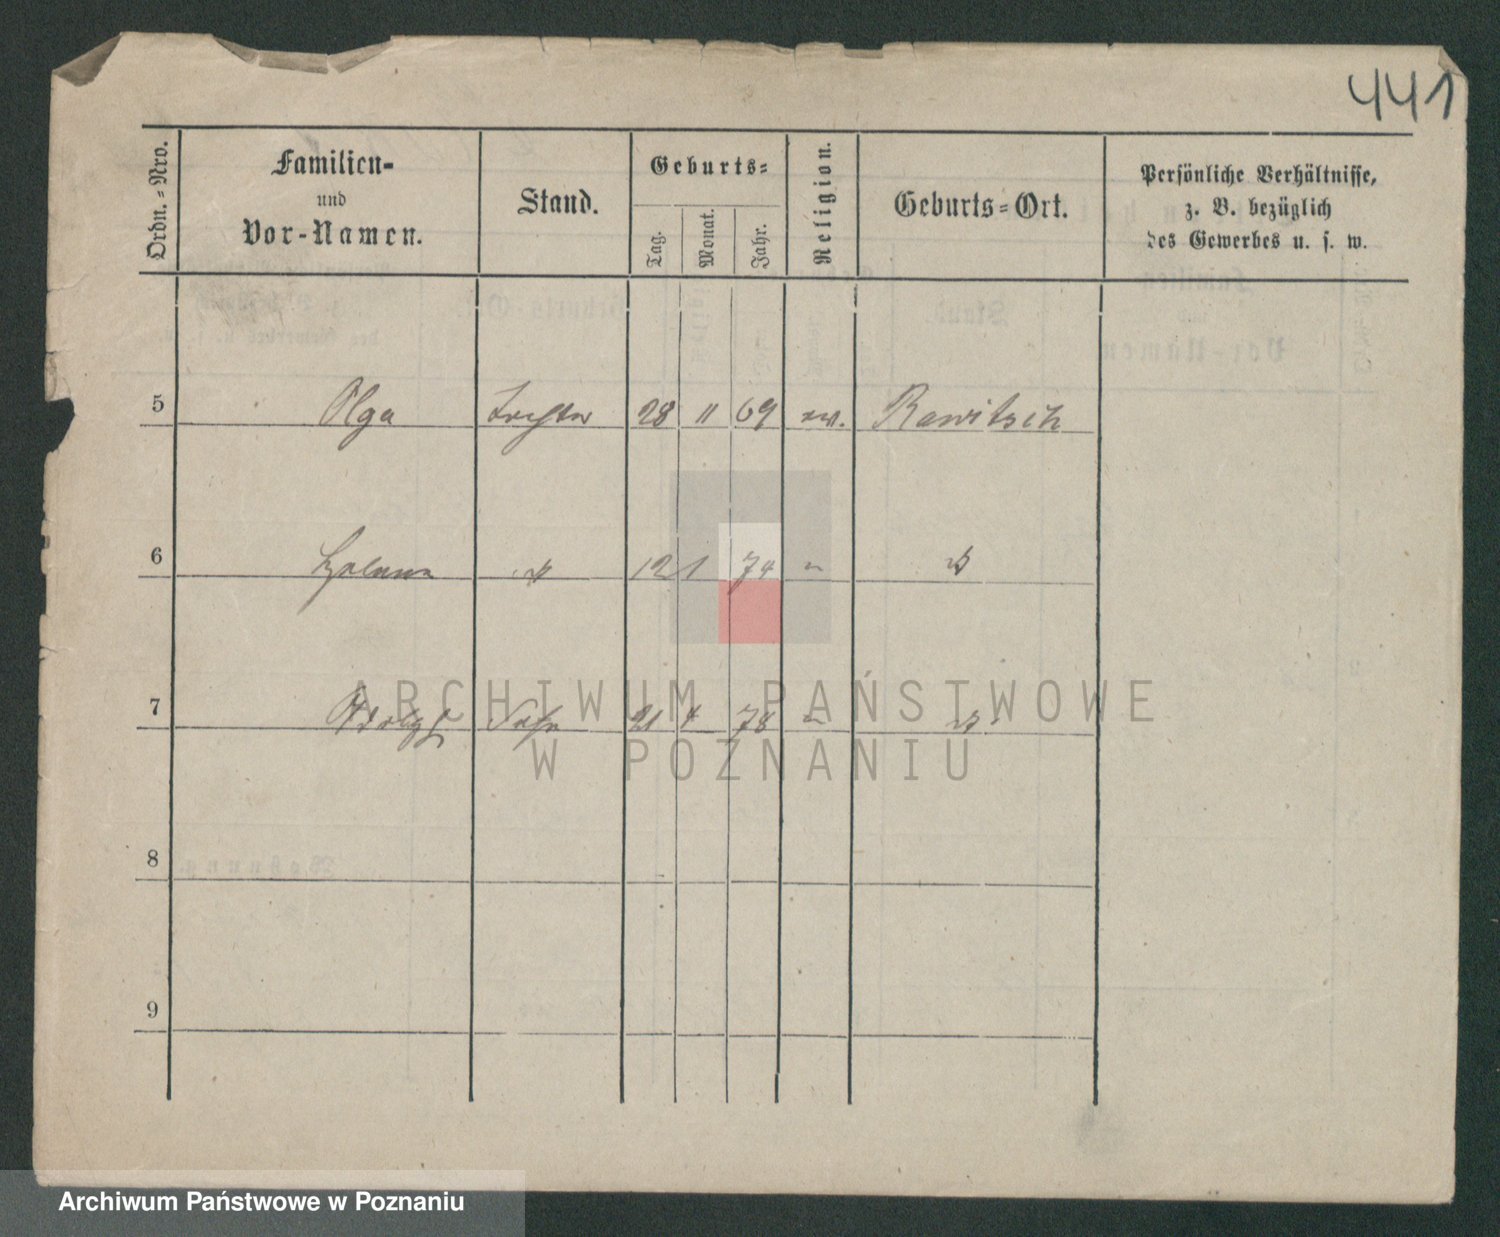 441
Ordn.-Nro.
Familien-
und
Vor-Namen.
Stand.
Geburts-
Tag.
Monat.
Jahr.
Religion.
Geburts-Ort.
Persönliche Verhältnisse,
z. B. bezüglich
des Gewerbes u. s. w.
5 Olga Tochter 28 11 69 ev. Rawitsch
6 12 1 74 "
7 Adolph Sohn 21 4 78 "
8
9
ARCHIWUM PAŃSTWOWE
W POZNANIU
Archiwum Państwowe w Poznaniu